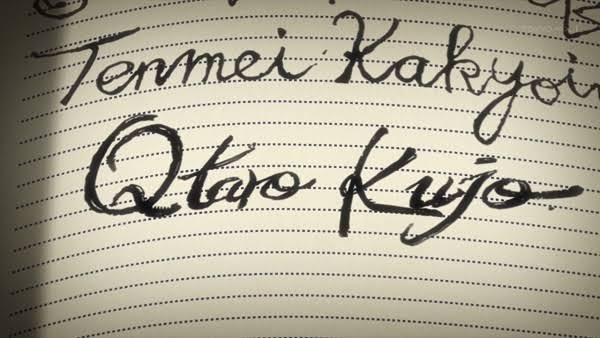 Tenmei Kakyoin
Qtaro Kujo.